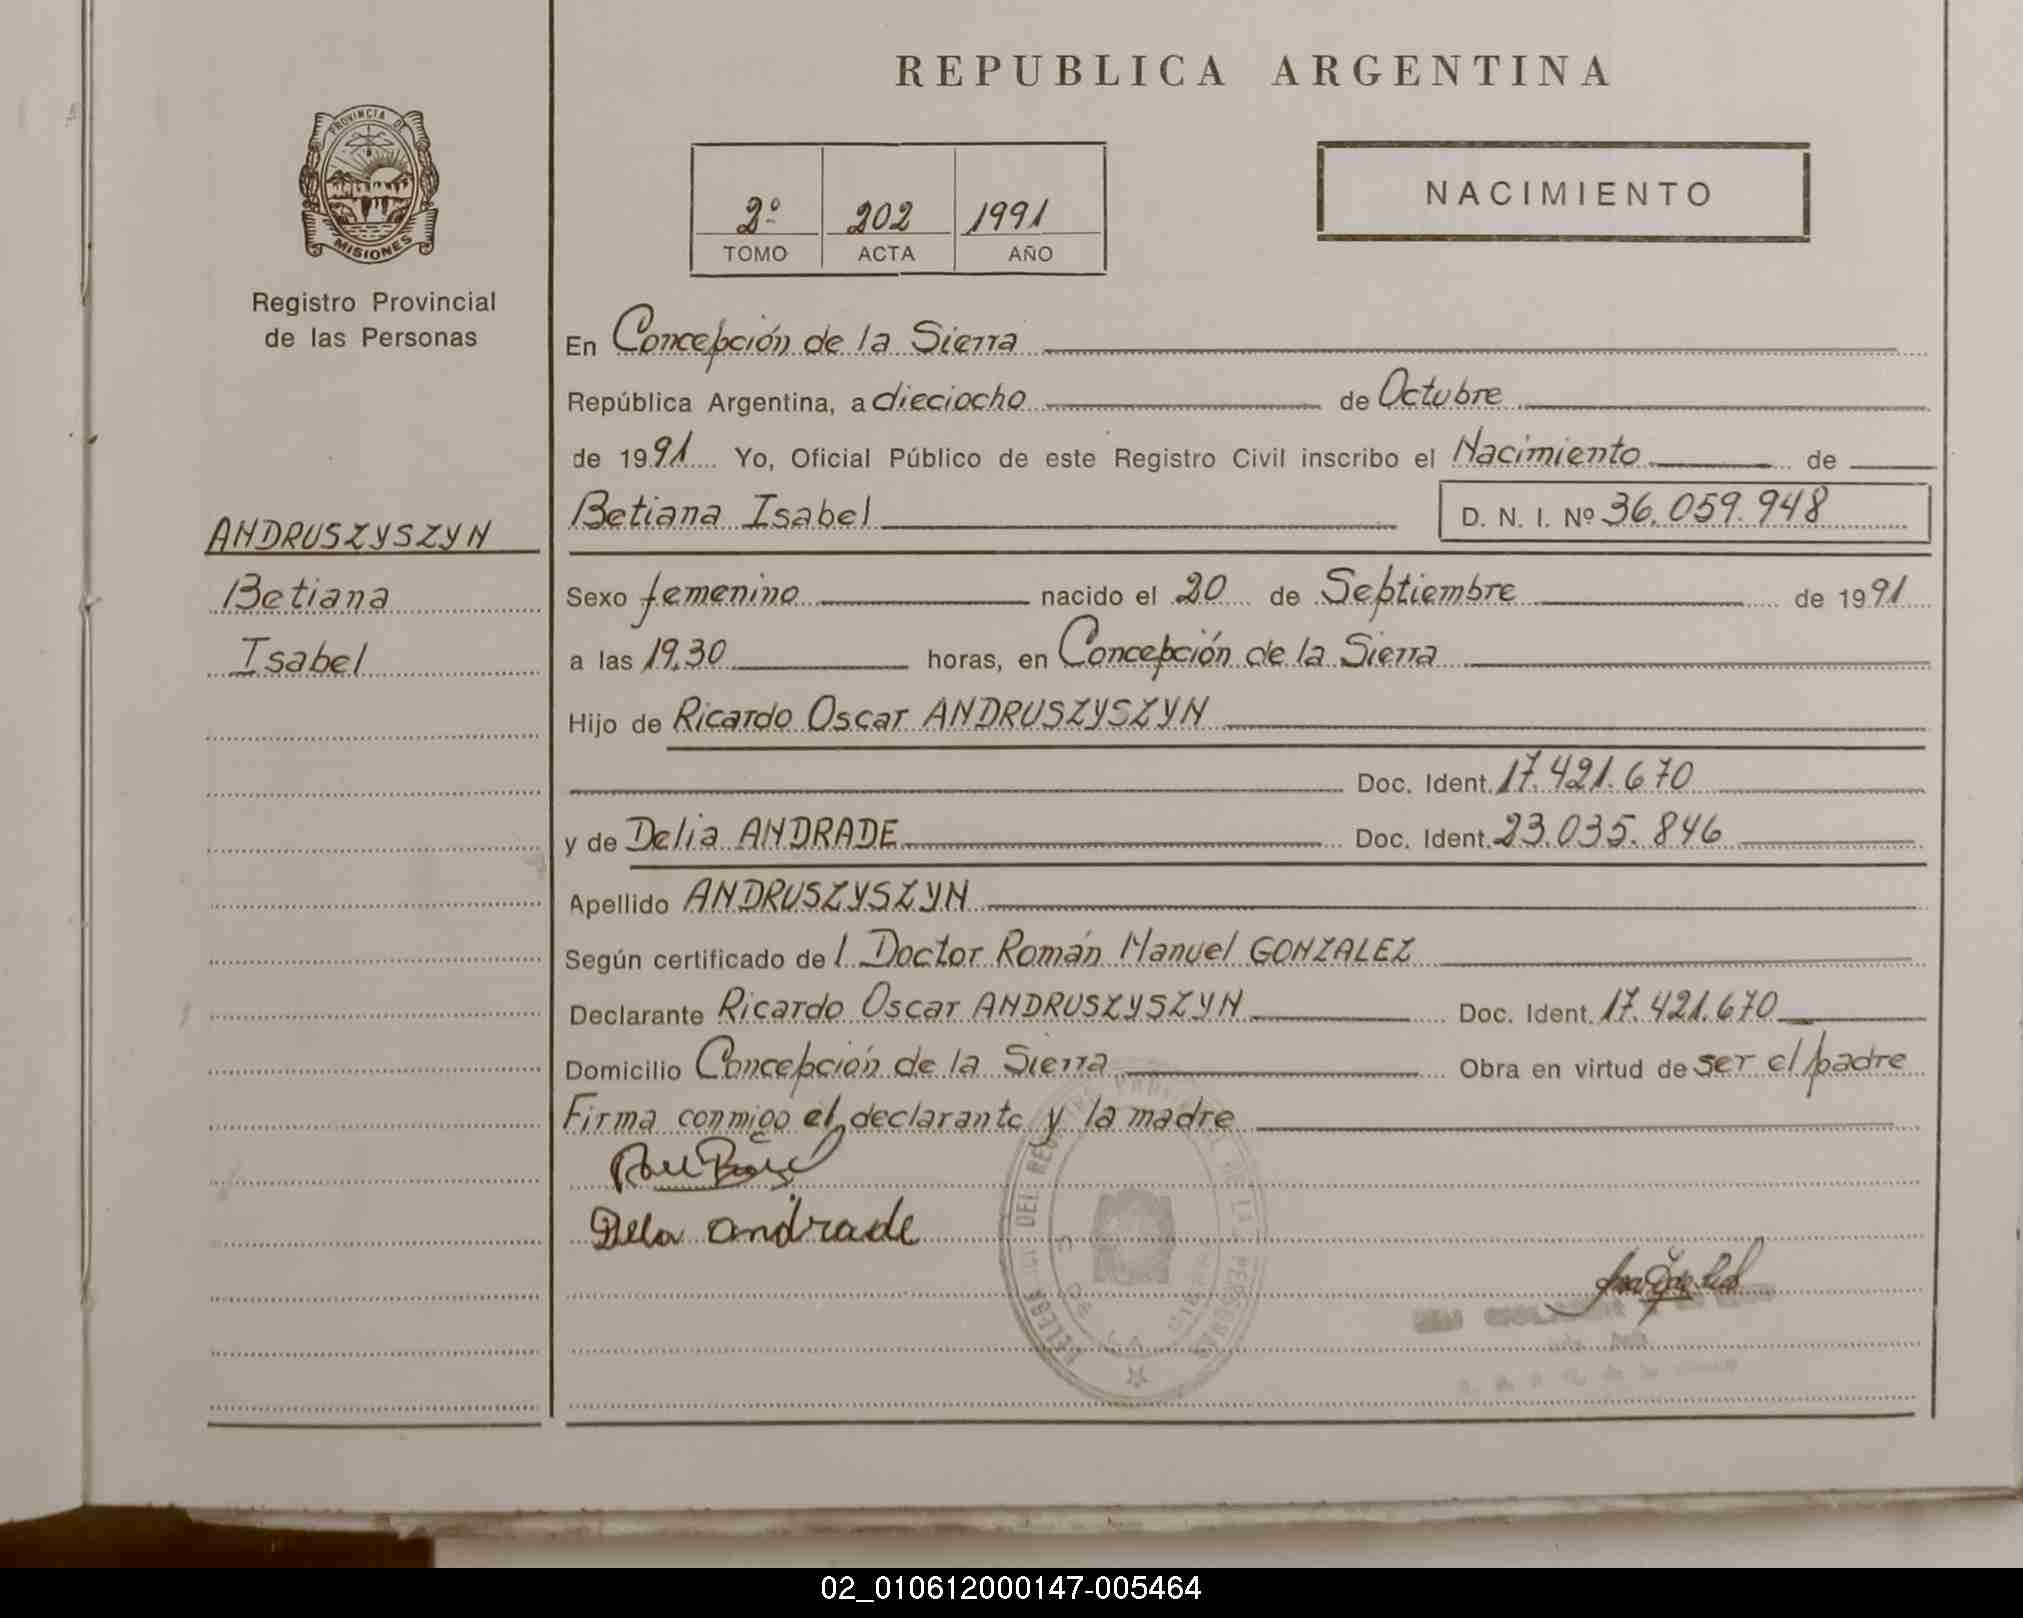 REPUBLICA ARGENTINA
PROVINCIA DE
MISIONES
Registro Provincial
de las Personas
2º 202 1991
TOMO ACTA AÑO
NACIMIENTO
ANDRUSZYSZYN
Betiana
Isabel
En Concepción de la Sierra
República Argentina, a dieciocho de Octubre
de 1991 Yo, Oficial Público de este Registro Civil inscribo el Nacimiento de
Betiana Isabel D. N. I. Nº 36.059.948
Sexo femenino nacido el 20 de Septiembre de 1991
a las 19.30 horas, en Concepción de la Sierra
Hijo de Ricardo Oscar ANDRUSZYSZYN
Doc. Ident. 17.421.670
y de Delia ANDRADE Doc. Ident. 23.035.846
Apellido ANDRUSZYSZYN
Según certificado de l Doctor Román Manuel GONZALEZ
Declarante Ricardo Oscar ANDRUSZYSZYN Doc. Ident. 17.421.670
Domicilio Concepción de la Sierra Obra en virtud de ser el padre
Firma conmigo el declarante y la madre
andrade
02_010612000147-005464